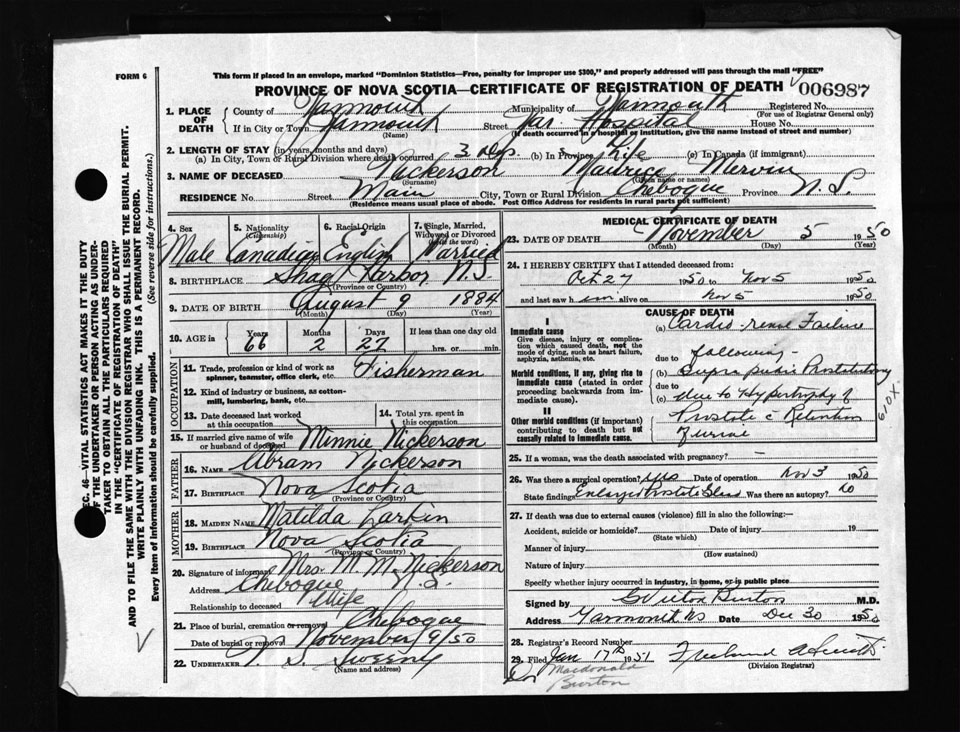 FORM 6
This form if placed in an envelope, marked "Dominion Statistics—Free, penalty for improper use $300," and properly addressed will pass through the mail "FREE"
PROVINCE OF NOVA SCOTIA—CERTIFICATE OF REGISTRATION OF DEATH
006987
1. PLACE OF DEATH
County of Yarmouth Municipality of Yarmouth Registered No.
(For use of Registrar General only)
If in City or Town Yarmouth Street Yar. Hospital House No.
(Name) (If death occurred in a hospital or institution, give the name instead of street and number)
2. LENGTH OF STAY (in years, months and days)
(a) In City, Town or Rural Division where death occurred 3 dys (b) In Province Life (c) In Canada (if immigrant)
3. NAME OF DECEASED Nickerson Maurice Mervin
(Surname) (Given name or names)
RESIDENCE No. Street Main City, Town or Rural Division Chebogue Province N.S.
(Residence means usual place of abode. Post Office Address for residents in rural parts not sufficient)
4. Sex 5. Nationality (Citizenship) 6. Racial Origin 7. Single, Married, Widowed or Divorced (write the word)
Male Canadian English Married
8. BIRTHPLACE Shag Harbor N.S.
(Province or Country)
9. DATE OF BIRTH August 9 1884
(Month) (Day) (Year)
10. AGE in Years Months Days If less than one day old
66 2 27 hrs. or min.
OCCUPATION
11. Trade, profession or kind of work as spinner, teamster, office clerk, etc. Fisherman
12. Kind of industry or business, as cotton-mill, lumbering, bank, etc.
13. Date deceased last worked at this occupation
14. Total yrs. spent in this occupation
15. If married give name of wife or husband of deceased Minnie Nickerson
FATHER
16. NAME Abram Nickerson
17. BIRTHPLACE Nova Scotia
(Province or Country)
MOTHER
18. MAIDEN NAME Matilda Larkin
19. BIRTHPLACE Nova Scotia
(Province or Country)
20. Signature of informant Mrs. M. M. Nickerson
Address Chebogue
Relationship to deceased Wife
21. Place of burial, cremation or removal Chebogue
Date of burial or removal November 9/50
22. UNDERTAKER Sweeny
(Name and address)
MEDICAL CERTIFICATE OF DEATH
23. DATE OF DEATH November 5 1950
(Month) (Day) (Year)
24. I HEREBY CERTIFY that I attended deceased from:
Oct 27 1950 to Nov 5 1950
and last saw him alive on Nov 5 1950
CAUSE OF DEATH
I
Immediate cause
Give disease, injury or complication which caused death, not the mode of dying, such as heart failure, asphyxia, asthenia, etc.
(a) Cardio-renal Failure
due to following -
Morbid conditions, if any, giving rise to immediate cause (stated in order proceeding backwards from immediate cause).
(b) Supra pubic Prostatectomy
due to
(c) due to Hypertrophy of
II
Other morbid conditions (if important) contributing to death but not causally related to immediate cause.
Prostate c Retention
Urine
610X
25. If a woman, was the death associated with pregnancy? —
26. Was there a surgical operation? yes Date of operation Nov 3 1950
State findings Enlarged Prostate Gland Was there an autopsy? no
27. If death was due to external causes (violence) fill in also the following:—
Accident, suicide or homicide? Date of injury 19
(State which)
Manner of injury
(How sustained)
Nature of injury
Specify whether injury occurred in industry, in home, or in public place
Signed by Burton M.D.
Address Yarmouth NS Date Dec 30 1950
28. Registrar's Record Number
29. Filed Jan 17th 1951
(Division Registrar)
Dr Macdonald
Burton
SEC. 46—VITAL STATISTICS ACT MAKES IT THE DUTY OF THE UNDERTAKER OR PERSON ACTING AS UNDERTAKER TO OBTAIN ALL THE PARTICULARS REQUIRED IN THE "CERTIFICATE OF REGISTRATION OF DEATH" AND TO FILE THE SAME WITH THE DIVISION REGISTRAR WHO SHALL ISSUE THE BURIAL PERMIT.
WRITE PLAINLY WITH UNFADING INK. THIS IS A PERMANENT RECORD.
Every item of information should be carefully supplied. (See reverse side for instructions.)